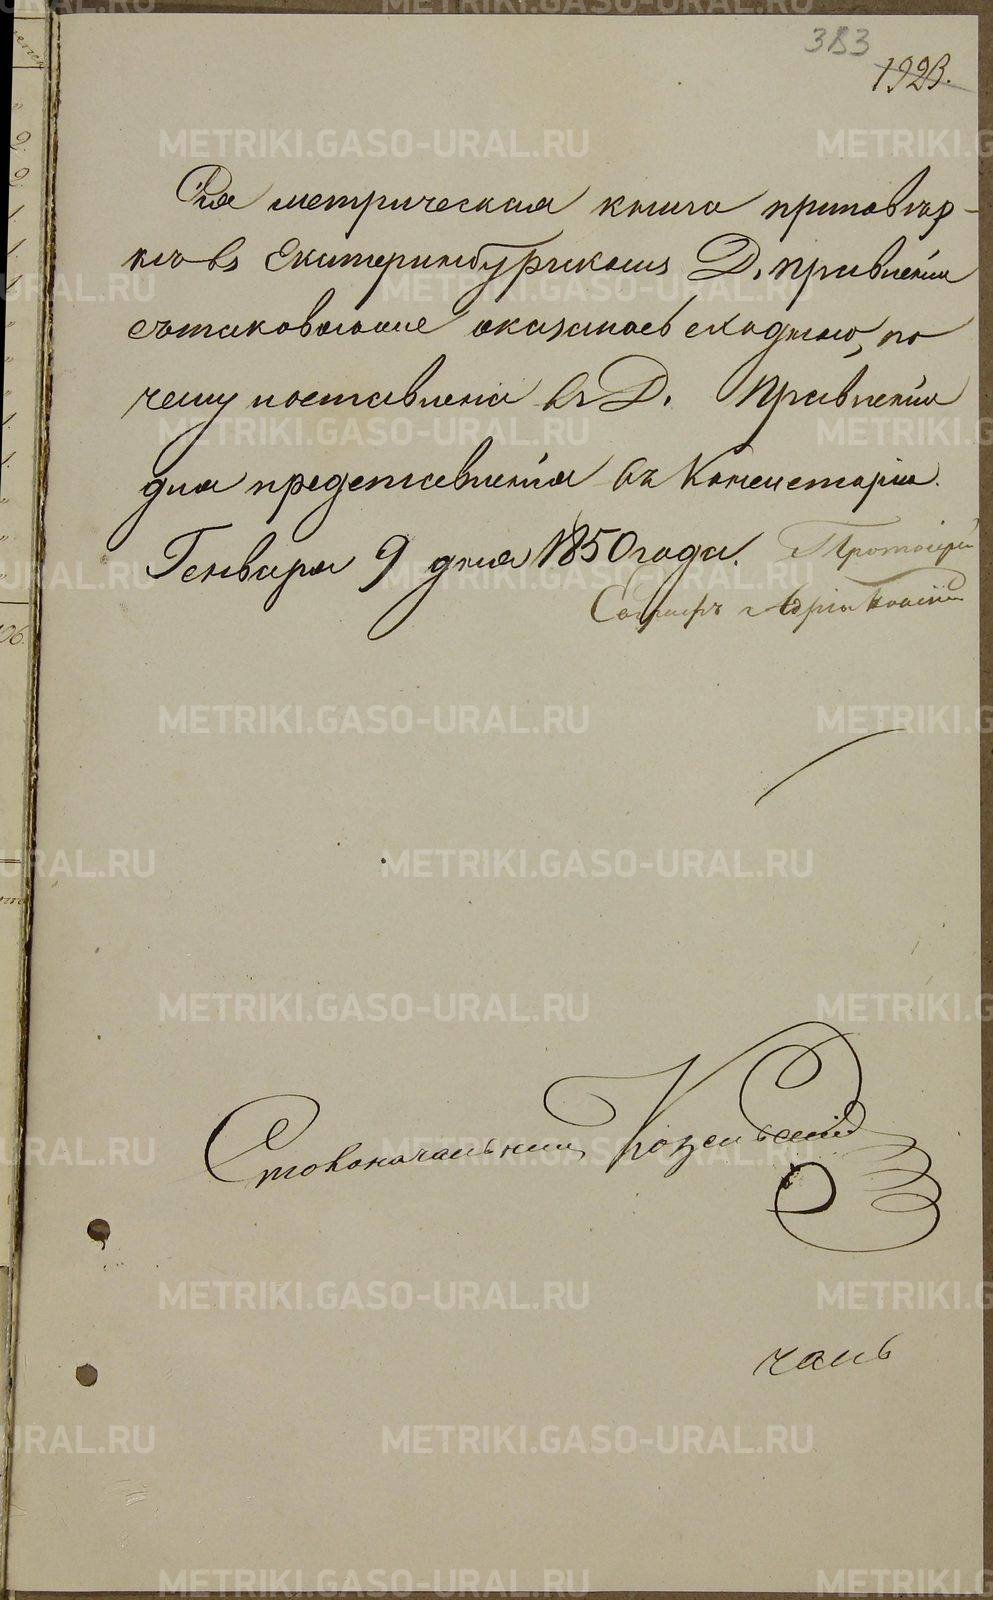 383
1923.
Сія метрическая книга приповѣр-
кѣ въ Екатеринбургскомъ Д. Правленіи
съ таковою же оказалась сходною, по
чему и оставлена въ Д. Правленіи
для представленія въ Консисторію.
Генваря 9 дня 1850 года. Протоіерей
Столоначальникъ
чаль
METRIKI.GASO-URAL.RU